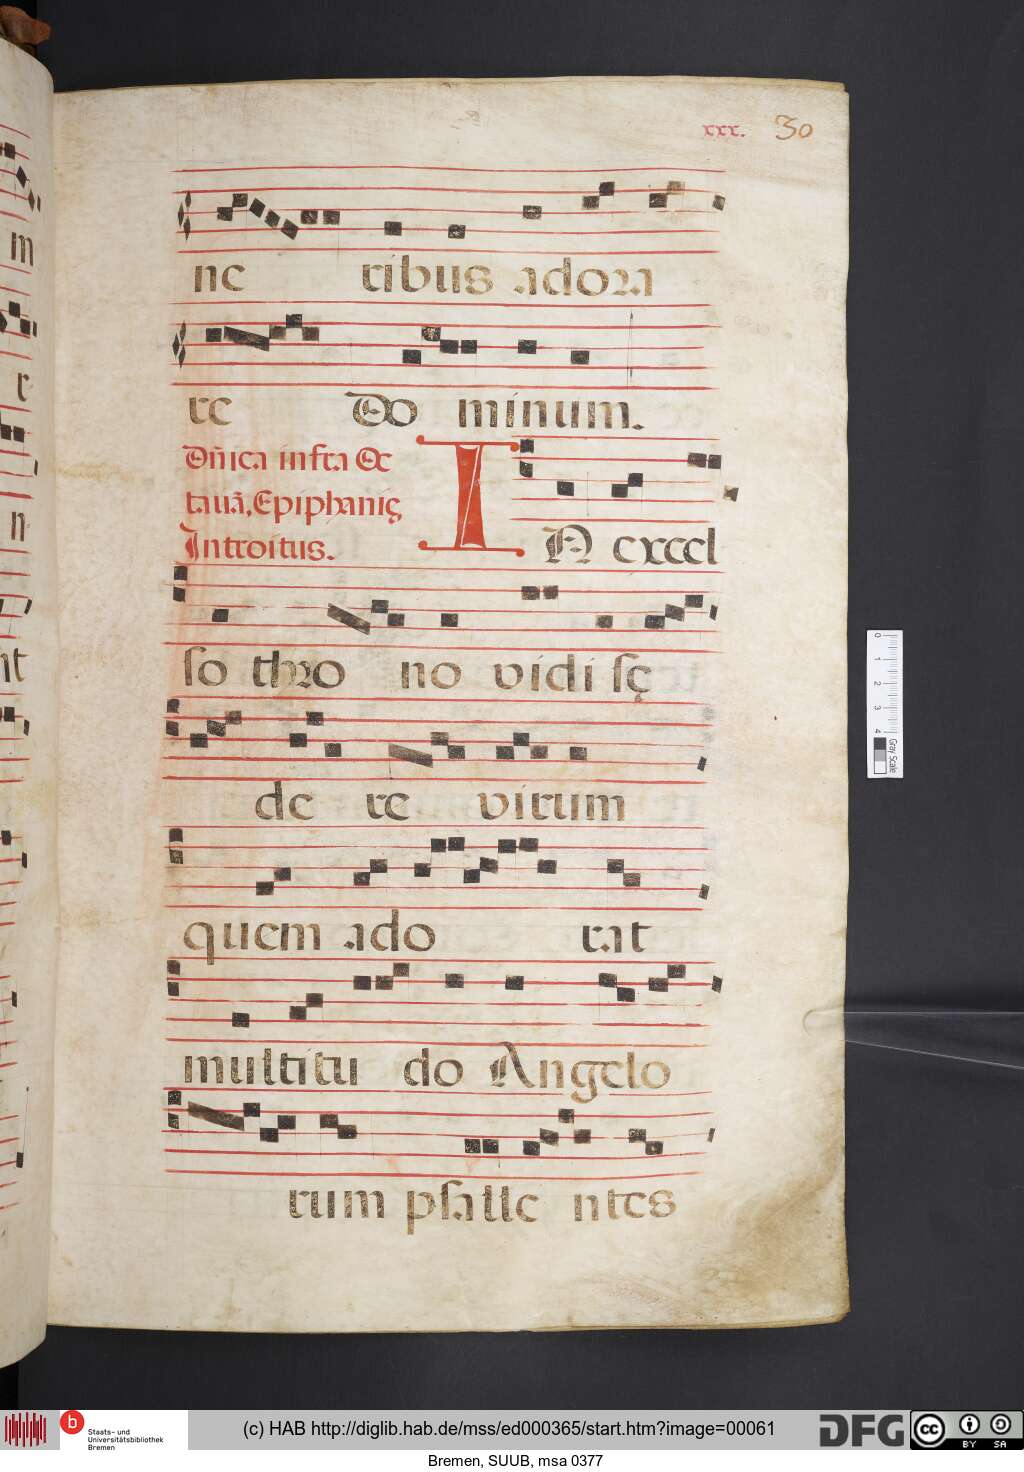 xxx. 30
ne ribus adora
re Do minum.
Dñica infra Oc
tauã, Epiphanię
Introitus.
IN excel
so thro no vidi sę
de re virum
quem ado rat
multitu do Angelo
rum psalle ntes
m
r
n
nt
0 1 2 3 4
Gray Scale
b Staats- und
Universitätsbibliothek
Bremen
(c) HAB http://diglib.hab.de/mss/ed000365/start.htm?image=00061
DFG
cc BY SA
Bremen, SUUB, msa 0377